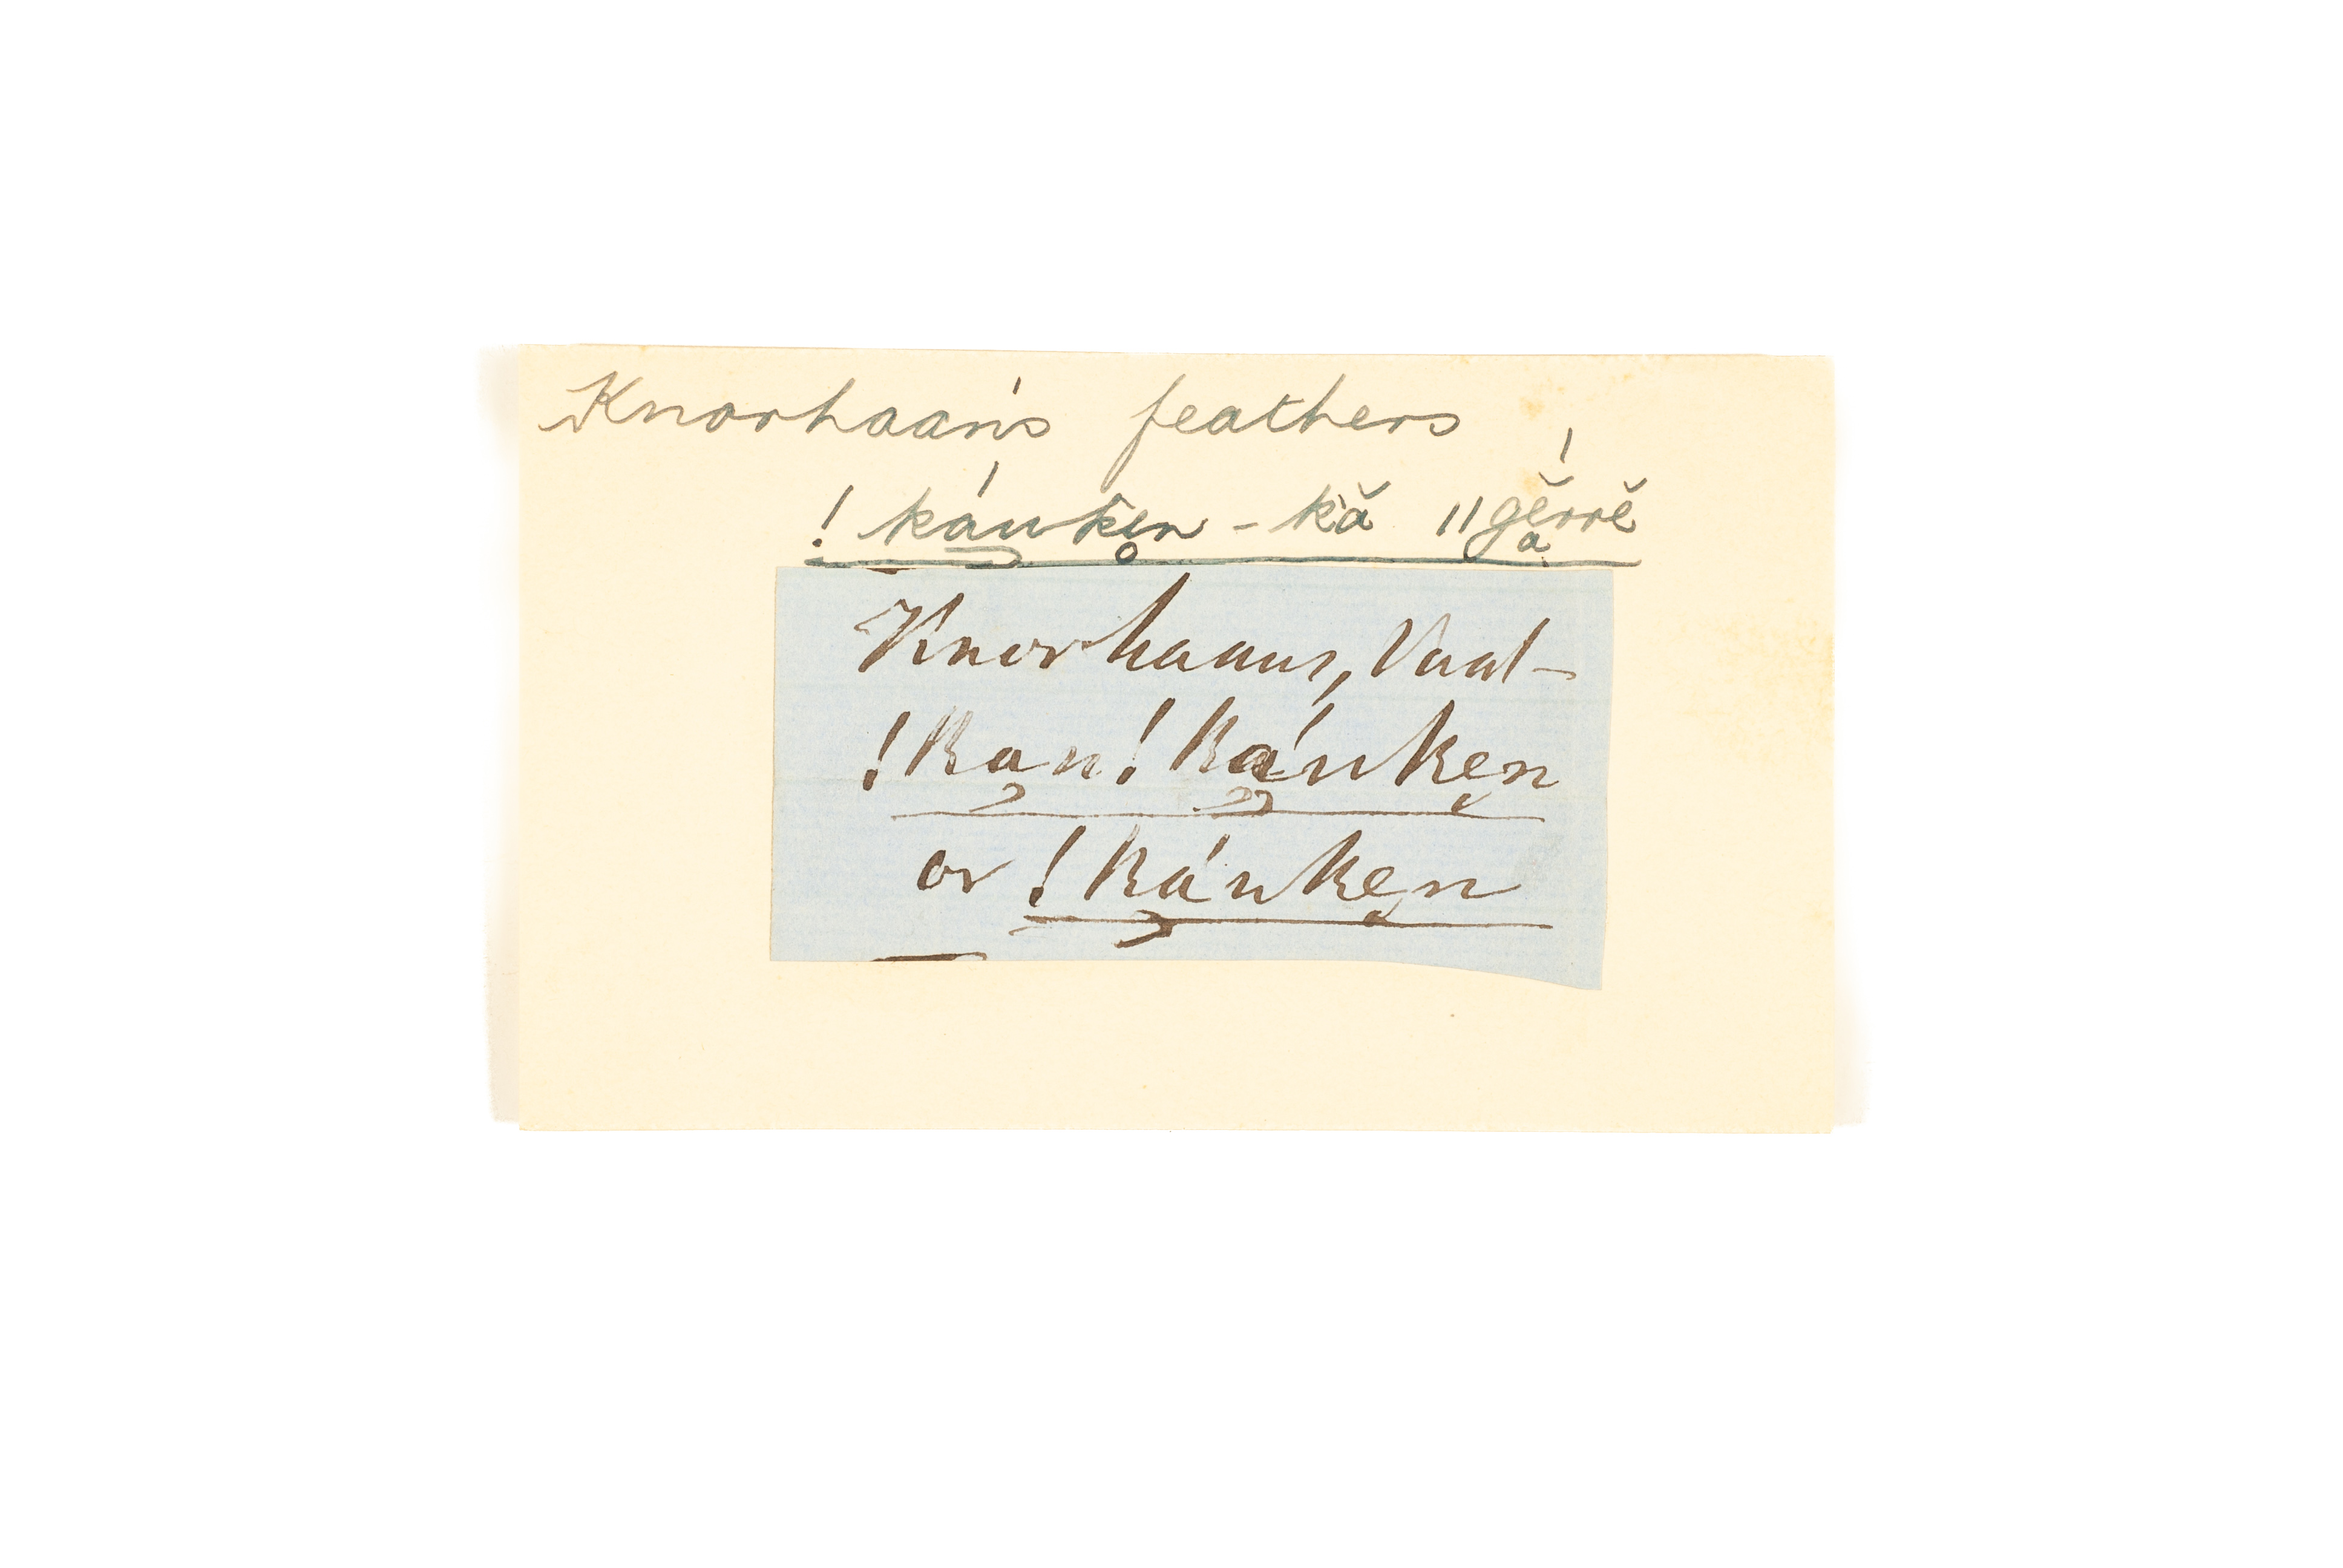 Knorhaan's feathers
!káuken̥ - kă ǁgĕrrĕ
Knorhaans, Vaal-
!Kau!káuken
or !káuken